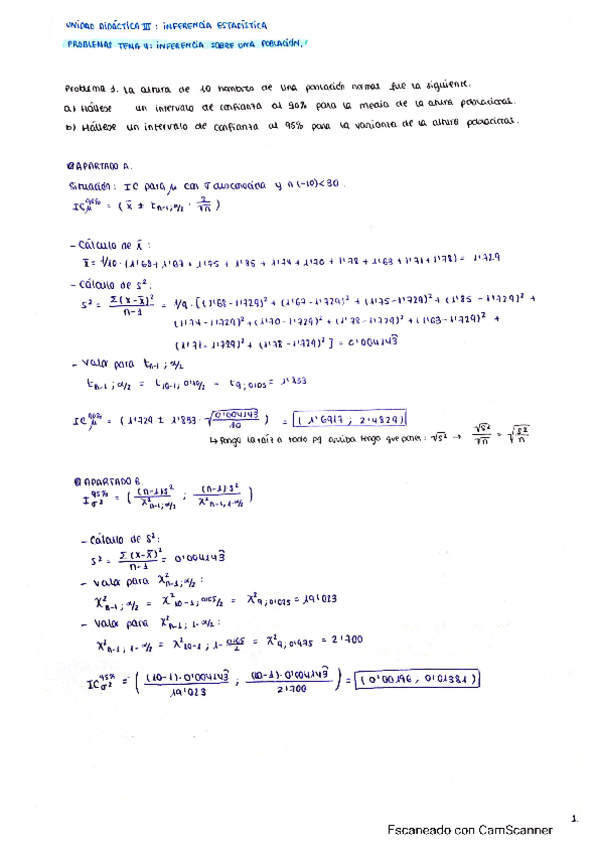 UNIDAD DIDÁCTICA III: INFERENCIA ESTADÍSTICA
PROBLEMAS TEMA 4: INFERENCIA SOBRE UNA POBLACIÓN.
Problema 1. La altura de 10 hombres de una población normal fue la siguiente.
a) Hállese un intervalo de confianza al 90% para la media de la altura poblacional.
b) Hállese un intervalo de confianza al 95% para la varianza de la altura poblacional.
APARTADO A.
Situación: IC para μ con σ desconocida y n (=10) < 30.
IC μ 90% = ( x̄ ± t n-1; α/2 · 2/√n )
- Cálculo de x̄:
x̄ = 1/10 · (1'68 + 1'67 + 1'75 + 1'85 + 1'74 + 1'70 + 1'78 + 1'63 + 1'71 + 1'78) = 1'729
- Cálculo de s²:
s² = Σ(x-x̄)² / n-1 = 1/9 · [(1'68 - 1'729)² + (1'67 - 1'729)² + (1'75 - 1'729)² + (1'85 - 1'729)² +
(1'74 - 1'729)² + (1'70 - 1'729)² + (1'78 - 1'729)² + (1'63 - 1'729)² +
(1'71 - 1'729)² + (1'78 - 1'729)²] = 0'004143
- Valor para t n-1; α/2
t n-1; α/2 = t 10-1; 0'10/2 = t 9; 0'05 = 1'833
IC μ 90% = (1'729 ± 1'833 · √(0'004143/10)) = (1'6917 ; 2'4829)
↳ Pongo la raíz a todo pq arriba tengo que poner: √s² → √s²/√n = √(s²/n)
APARTADO B.
I σ² 95% = ( (n-1)·s² / χ² n-1; α/2 ; (n-1)·s² / χ² n-1; 1-α/2 )
- Cálculo de s²:
s² = Σ(x-x̄)² / n-1 = 0'004143
- Valor para χ² n-1; α/2:
χ² n-1; α/2 = χ² 10-1; 0'05/2 = χ² 9; 0'025 = 19'023
- Valor para χ² n-1; 1-α/2:
χ² n-1; 1-α/2 = χ² 10-1; 1-0'05/2 = χ² 9; 0'975 = 2'700
IC σ² 95% = ( (10-1)·0'004143 / 19'023 ; (10-1)·0'004143 / 2'700 ) = (0'00196 ; 0'01381)
1.
Escaneado con CamScanner